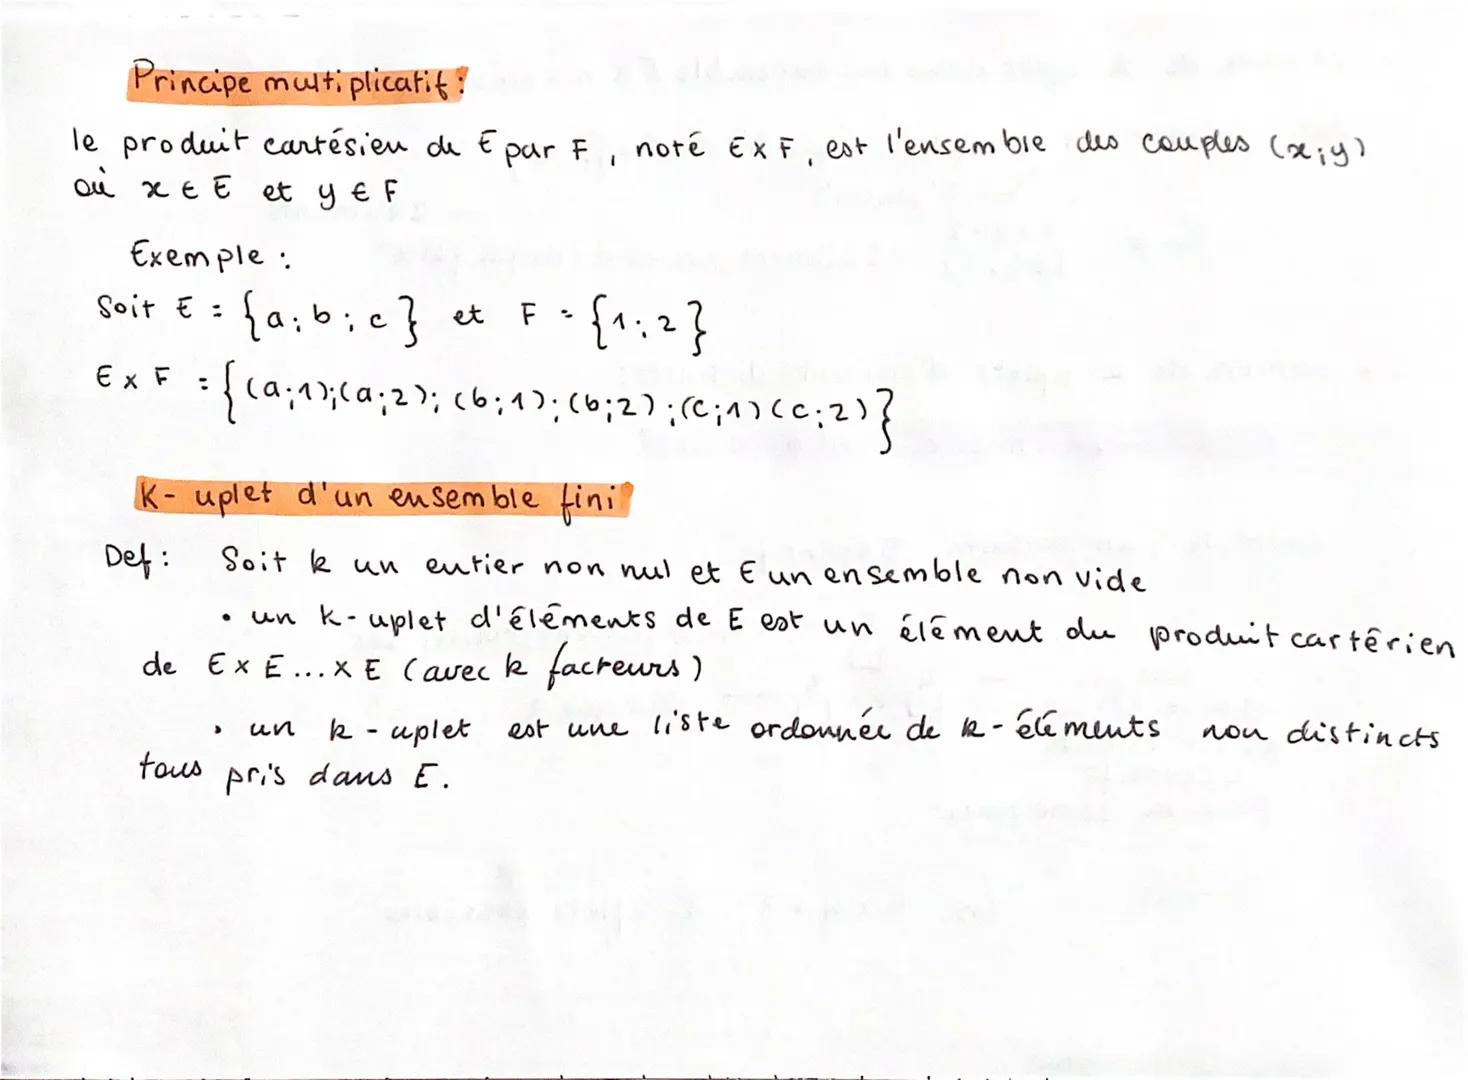 Principe multiplicatif :
le produit cartésien de E par F, noté E x F, est l'ensemble des couples (x;y)
où x ∈ E et y ∈ F
Exemple :
Soit E = {a;b;c} et F = {1;2}
E x F = {(a;1);(a;2);(b;1);(b;2);(c;1)(c;2)}
K-uplet d'un ensemble fini
Def : Soit k un entier non nul et E un ensemble non vide
• un k-uplet d'éléments de E est un élément du produit cartérien
de E x E ... x E (avec k facteurs)
• un k-uplet est une liste ordonnée de k-éléments non distincts
tous pris dans E.